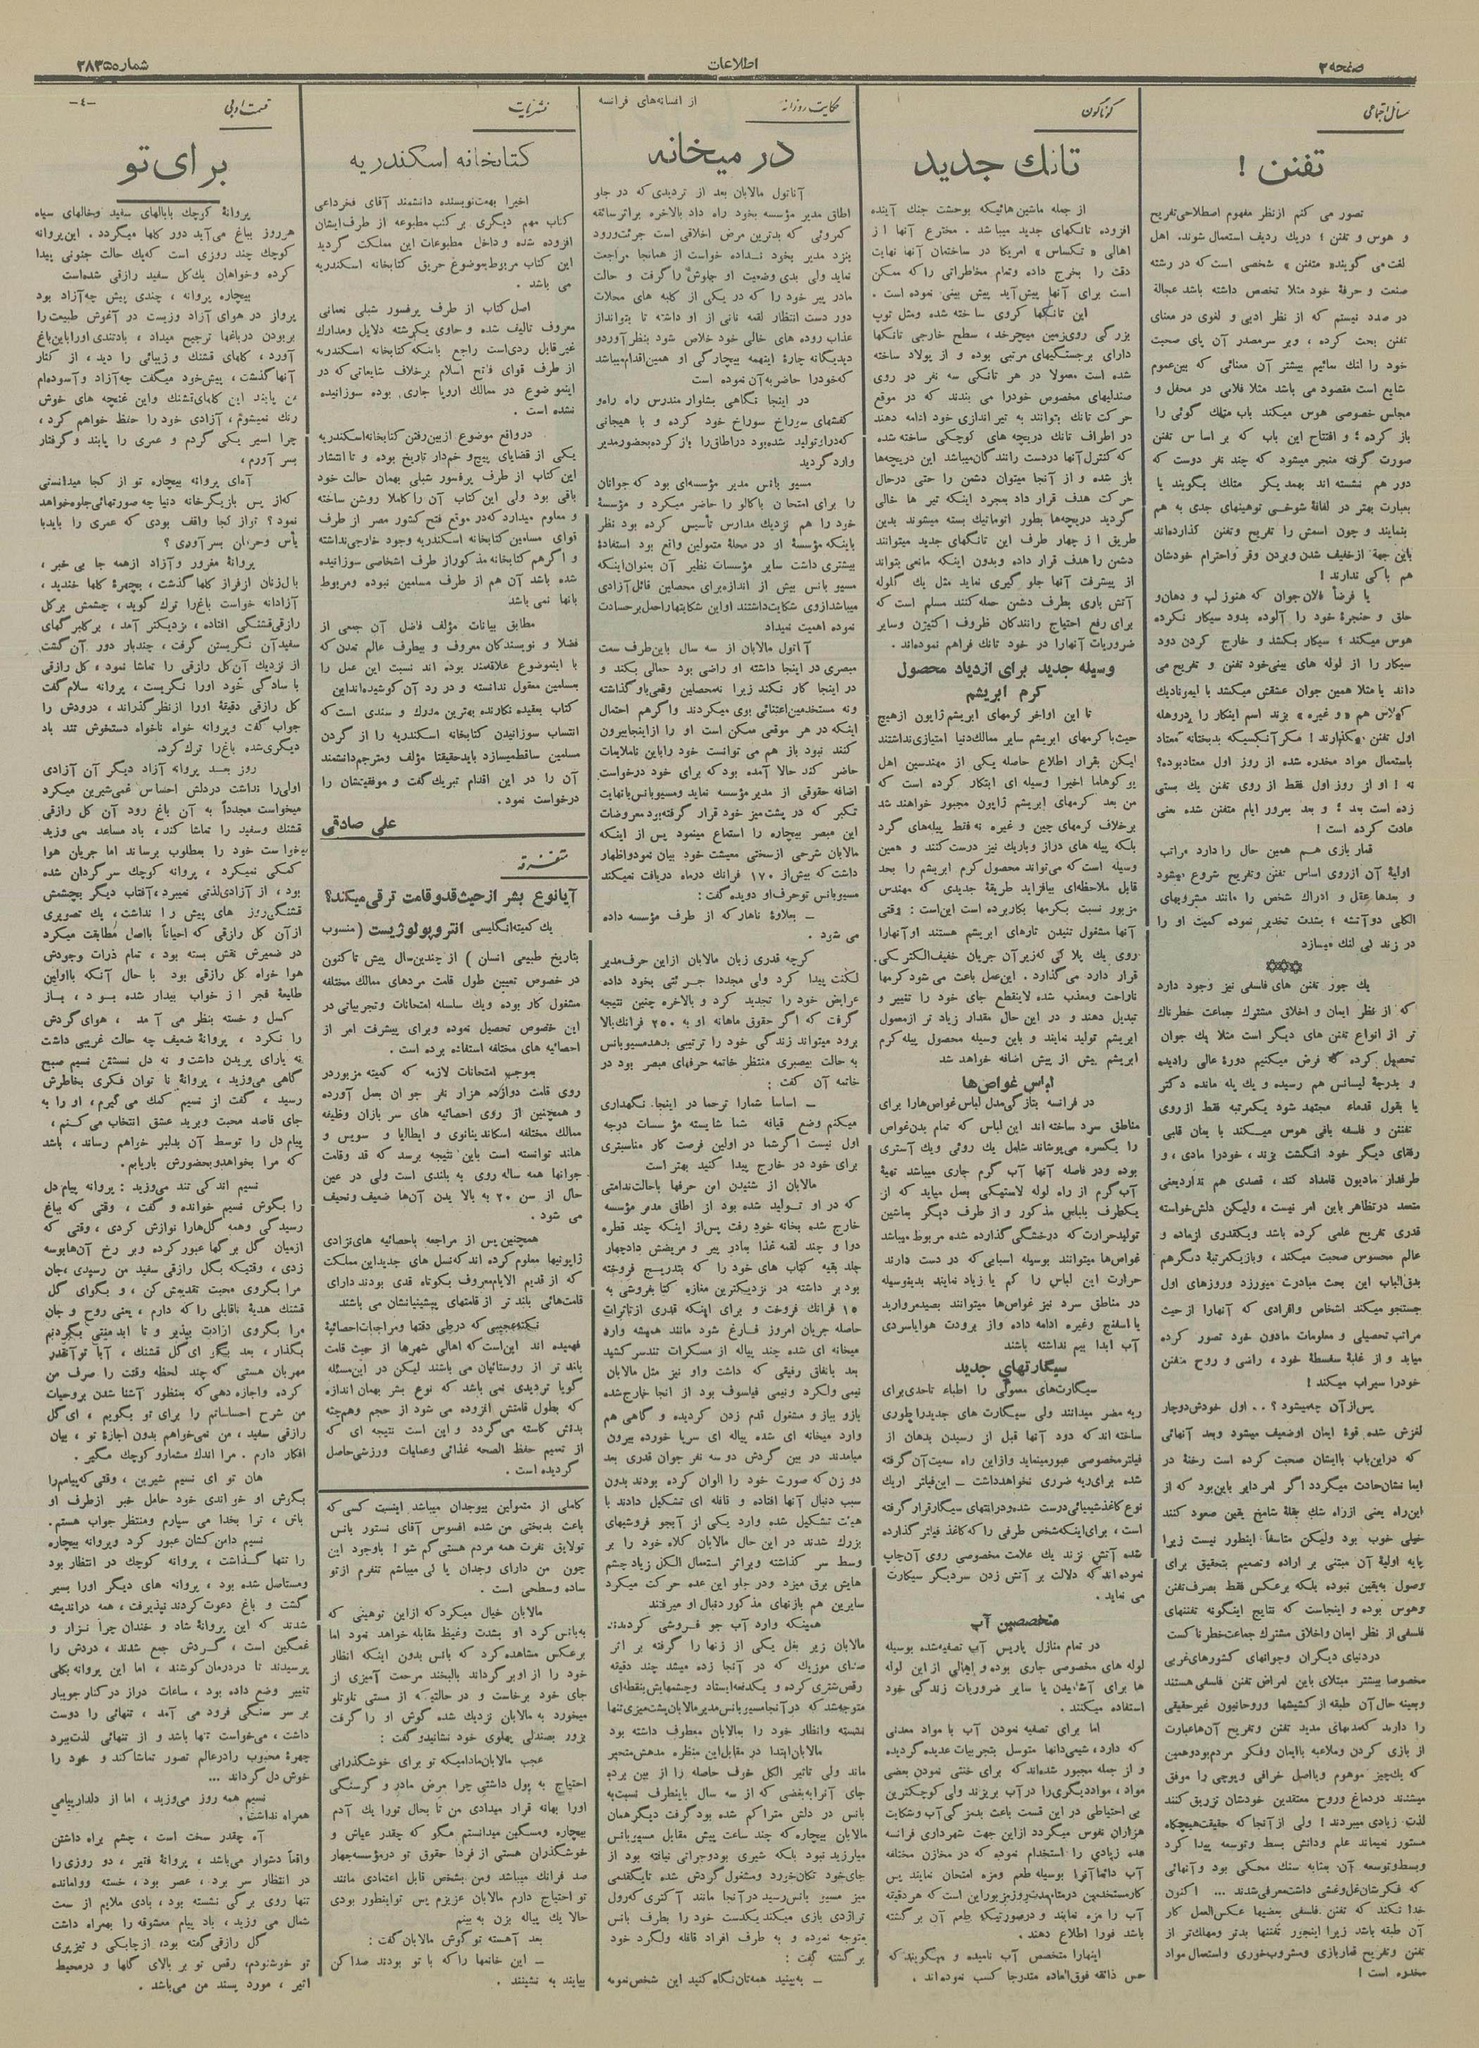 صفحه ۲
اطلاعات
شماره ۲۸۳۵
مسائل اجتماعی
تفنن !
تصور می کنم از نظر مفهوم اصطلاحی تفریح
و هوس و تفنن ؛ در یک ردیف استعمال شوند. اهل
لغت می گویند «متفنن» شخصی است که در رشته
صنعت و حرفهٔ خود مثلا تخصص داشته باشد عجالة
در صدد نیستم که از نظر ادبی و لغوی در معنای
تفنن بحث کرده ، و بر سر مصدر آن پای صحبت
خود را لنك نمائیم بیشتر آن معنائی که بین عموم
شایع است مقصود می باشد مثلا فلانی در محفل و
مجلس خصوصی هوس میکند باب متلك گوئی را
باز کرده ؛ و افتتاح این باب که بر اساس تفنن
صورت گرفته منجر میشود که چند نفر دوست که
دور هم نشسته اند بهمدیگر متلك بگویند یا
بعبارت بهتر در لفافهٔ شوخی توهینهای جدی به هم
بنمایند و چون اسمش را تفریح وتفنن گذارده‌اند
باین جهة از خفیف شدن و بردن وقر و احترام خودشان
هم باکی ندارند !
یا فرضاً فلان جوان که هنوز لب و دهان و
حلق و حنجرهٔ خود را آلوده بدود سیکار نکرده
هوس میکند ؛ سیکار بکشد و خارج کردن دود
سیکار را از لوله های بینی خود تفنن و تفریح می
داند یا مثلا همین جوان عشقش میکشد با لیوناد یک
گیلاس هم «و غیره» بزند اسم اینکار را در وهله
اول تفنن میگذارند ! مگر آنکسیکه بدبختانه معتاد
باستعمال مواد مخدره شده از روز اول معتاد بوده؟
نه ! او از روز اول فقط از روی تفنن یک بستی
زده است بعد ؛ و بعد بمرور ایام متفنن شده یعنی
عادت کرده است !
قمار بازی هم همین حال را دارد مراتب
اولیهٔ آن از روی اساس تفنن وتفریح شروع میشود
و بعدها عقل و ادراك شخص را مانند مشروبهای
الکلی دو آتشه ؛ بشدت تخدیر نموده کمیت او را
در زندگی لنك میسازد
یك جوز تفنن های فلسفی نیز وجود دارد
که از نظر ایمان و اخلاق مشترك جماعت خطرناك
تر از انواع تفنن های دیگر است مثلا یك جوان
تحصیل کرده که فرض میکنیم دورهٔ عالی رادیده
و بدرجهٔ لیسانس هم رسیده و یك پله مانده دکتر
یا بقول قدماء مجتهد شود یکمرتبه فقط از روی
تفنن و فلسفه بافی هوس میکند با یمان قلبی
رفقای دیگر خود انگشت بزند ، خود را مادی ، و
طرفدار مادیون قلمداد کند ، قصدی هم ندارد یعنی
متعمد در تظاهر باین امر نیست ، ولیکن دلش خواسته
قدری تفریح علمی کرده باشد و یکقدری از ماده و
عالم محسوس صحبت میکند ، و باز یکمرتبهٔ دیگر هم
بدق الباب این بحث مبادرت میورزد و روزهای اول
جستجو میکند اشخاص وافرادی که آنها را از حیث
مراتب تحصیلی و معلومات مادون خود تصور کرده
میابد و از غلبهٔ سفسطهٔ خود ، راضی و روح متفنن
خود را سیراب میکند !
پس از آن چه میشود ؟ . . اول خودش دوچار
لغزش شده قوهٔ ایمان او ضعیف میشود و بعد آنهائی
که در این باب باایشان صحبت کرده است رخنهٔ در
ایمانشان حادث میگردد اگر امر دایر باین بود که از
این راه یعنی از راه شك بقلهٔ شامخ یقین صعود کنند
خیلی خوب بود ولیکن متأسفاً اینطور نیست زیرا
پایه اولیهٔ آن مبتنی بر اراده و تصمیم بتحقیق برای
وصول به یقین نبوده بلکه برعکس فقط بصرف تفنن
و هوس بوده و اینجاست که نتایج اینگونه تفننهای
فلسفی از نظر ایمان واخلاق مشترك جماعت خطرناکست
در دنیای دیگران و جوانهای کشورهای غربی
مخصوصا بیشتر مبتلای باین امراض تفنن فلسفی هستند
و بعینه حال آن طبقه از کشیشها و روحانیون غیر حقیقی
را دارند که مدتهای مدید تفنن و تفریح آن ها عبارت
از بازی کردن و ملاعبه باایمان و فکر مردم بود و همین
که یك چیز موهوم و بااصل خرافی و پوچی را موفق
میشدند در دماغ و روح معتقدین خودشان تزریق کنند
لذت زیادی میبردند ! ولی از آنجا که حقیقت هیچگاه
مستور نمیماند علم و دانش بسط و توسعه پیدا کرد
و بسط و توسعه آن بمثابه سنك محکی بود و آنهائی
که فکرشان غل و غشی داشت معرفی شدند ... اکنون
خدا نکند که تفنن فلسفی بعضیها عکس العمل کار
آن طبقه باشد زیرا اینجور تفننها بدتر و مهلك تر از
تفنن و تفریح قمار بازی و مشروب خوری و استعمال مواد
مخدره است !
گوناگون
تانك جدید
از جمله ماشین هائیکه بوحشت جنك آینده
افزوده تانکهای جدید میباشد . مخترع آنها از
اهالی «تکساس» امریکا در ساختمان آنها نهایت
دقت را بخرج داده وتمام مخاطراتی را که ممکن
است برای آنها پیش آید پیش بینی نموده است .
این تانکها کروی ساخته شده و مثل توپ
بزرگی روی زمین میچرخد ، سطح خارجی تانکها
دارای برجستگیهای مرتبی بوده و از پولاد ساخته
شده است معمولا در هر تانکی سه نفر در روی
صندلیهای مخصوص خود را می بندند که در موقع
حرکت تانك بتوانند به تیر اندازی خود ادامه دهند
در اطراف تانك دریچه های کوچکی ساخته شده
که کنترل آنها در دست رانندگان میباشد این دریچه‌ها
باز شده و از آنجا میتوان دشمن را حتی در حال
حرکت هدف قرار داد بمجرد اینکه تیر ها خالی
گردید دریچه‌ها بطور اتوماتیك بسته میشوند بدین
طریق از چهار طرف این تانکهای جدید میتوانند
دشمن را هدف قرار داده و بدون اینکه مانعی بتواند
از پیشرفت آنها جلو گیری نماید مثل یك گلوله
آتش باری بطرف دشمن حمله کنند مسلم است که
برای رفع احتیاج رانندگان ظروف اکسیژن و سایر
ضروریات آنها را در خود تانك فراهم نموده‌اند .
وسیله جدید برای ازدیاد محصول
کرم ابریشم
تا این اواخر کرمهای ابریشم ژاپون از هیچ
حیث با کرمهای ابریشم سایر ممالك دنیا امتیازی نداشتند
لیکن بقرار اطلاع حاصله یکی از مهندسین اهل
یو کوهاما اخیرا وسیله ای ابتکار کرده است که
من بعد کرمهای ابریشم ژاپون مجبور خواهند شد
برخلاف کرمهای چین و غیره نه فقط پیله‌های گرد
بلکه پیله های دراز و باریك نیز درست کنند و همین
وسیله است که می‌تواند محصول کرم ابریشم را بحد
قابل ملاحظه‌ای بیافزاید طریقهٔ جدیدی که مهندس
مزبور نسبت بکرمها بکار برده است این است : وقتی
آنها مشغول تنیدن تارهای ابریشم هستند او آنها را
روی یك پلا کی که زیر آن جریان خفیف الکتریکی
قرار دارد می گذارد . این عمل باعث می شود کرمها
ناراحت و معذب شده لاینقطع جای خود را تغییر و
تبدیل دهند و در این حال مقدار زیاد تر از معمول
ابریشم تولید نمایند و باین وسیله محصول پیله کرم
ابریشم بیش از پیش اضافه خواهد شد
لباس غواص‌ها
در فرانسه بتازگی مدل لباس غواص‌ها را برای
مناطق سرد ساخته اند این لباس که تمام بدن غواص
را یکسره می‌پوشاند شامل یك روئی و یك آستری
بوده و در فاصله آنها آب گرم جاری میباشد تهیهٔ
آب گرم از راه لوله لاستیکی بعمل میاید که از
یکطرف بلباس مذکور و از طرف دیگر بماشین
تولید حرارت که در خشکی گذارده شده مربوط میباشد
غواص‌ها میتوانند بوسیله اسبابی که در دست دارند
حرارت این لباس را کم یا زیاد نمایند بدینوسیله
در مناطق سرد نیز غواص‌ها میتوانند بصید مروارید
یا اسفنج و غیره ادامه داده و از برودت هوا یا سردی
آب ابدا بیم نداشته باشند
سیگارتهای جدید
سیگارت‌های معمولی را اطباء تاحدی برای
ریه مضر میدانند ولی سیگارت های جدید را طوری
ساخته اند که دود آنها قبل از رسیدن بدهان از
فیلتر مخصوصی عبور مینماید و از این راه سمیت آن گرفته
شده برای ریه ضرری نخواهد داشت ــ این فیلتر از یك
نوع کاغذ شیمیائی درست شده و در انتهای سیگار قرار گرفته
است ، برای اینکه شخص طرفی را که کاغذ فیلتر گذارده
شده آتش نزند یك علامت مخصوصی روی آن چاپ
نموده اند که دلالت بر آتش زدن سر دیگر سیکارت
می نماید .
متخصصین آب
در تمام منازل پاریس آب تصفیه شده بوسیله
لوله های مخصوصی جاری بوده و اهالی از این لوله
ها برای آشامیدن یا سایر ضروریات زندگی خود
استفاده میکنند .
اما برای تصفیه نمودن آب با مواد معدنی
که دارد ، شیمی‌دانها متوسل بتجربیات عدیده گردیده
و از جمله مجبور شده‌اند که برای خنثی نمودن بعضی
مواد ، مواد دیگری را در آب بریزند ولی کوچکترین
بی احتیاطی در این قسمت باعث بدمزگی آب و شکایت
هزاران نفوس میگردد از این جهت شهرداری فرانسه
عده زیادی را استخدام نموده که در مخازن مختلفه
آب دائما آنرا بوسیله طعم و مزه امتحان نمایند پس
کار مستخدمین در تمام مدت روز مزبور این است که هر دقیقه
آب را مزه نمایند و در صورتیکه طعم آن برگشته
باشد فورا اطلاع دهند .
اینها را متخصص آب نامیده و میگویند که
حس ذائقه فوق العاده متدرجا کسب نموده اند .
حکایت روزانه
از افسانه‌های فرانسه
در میخانه
آناتول مالابان بعد از تردیدی که در جلو
اطاق مدیر مؤسسه بخود راه داد بالاخره بر اثر سائقه
کمروئی که بدترین مرض اخلاقی است جرئت ورود
بنزد مدیر بخود نداده خواست از همانجا مراجعت
نماید ولی بدی وضعیت او جلوش را گرفت و حالت
مادر پیر خود را که در یکی از کلبه های محلات
دور دست انتظار لقمه نانی از او داشته تا بتواند از
عذاب روده های خالی خود خلاص شود بنظر آورد و
دید یگانه چارهٔ اینهمه بیچارگی او همین اقدام میباشد
که خود را حاضر به آن نموده است
در اینجا نگاهی بشلوار مندرس راه راه و
کفشهای سوراخ سوراخ خود کرده و با هیجانی
که در او تولید شده بود در اطاق را باز کرده بحضور مدیر
وارد گردید
مسیو بانس مدیر مؤسسه‌ای بود که جوانان
را برای امتحان باکالو را حاضر میکرد و مؤسسهٔ
خود را هم نزدیك مدارس تأسیس کرده بود نظر
باینکه مؤسسهٔ او در محلهٔ متمولین واقع بود استفادهٔ
بیشتری داشت سایر مؤسسات نظیر آن بعنوان اینکه
مسیو بانس بیش از اندازه برای محصلین قائل آزادی
میباشد از وی شکایت داشتند او این شکایتها را حمل بر حسادت
نموده اهمیت نمیداد
آناتول مالابان از سه سال باین طرف سمت
مبصری در اینجا داشته او راضی بود حمالی بکند و
در اینجا کار نکند زیرا نه محصلین وقعی باو گذاشته
و نه مستخدمین اعتنائی بوی میکردند و اگر هم احتمال
اینکه در هر موقعی ممکن است او را از اینجا بیرون
کنند نبود باز هم می توانست خود را باین ناملایمات
حاضر کند حالا آمده بود که برای خود درخواست
اضافه حقوقی از مدیر مؤسسه نماید و مسیو بانس بانهایت
تکبر که در پشت میز خود قرار گرفته بود معروضات
این مبصر بیچاره را استماع مینمود پس از اینکه
مالابان شرحی از سختی معیشت خود بیان نمود و اظهار
داشت که بیش از ۱۷۰ فرانك در ماه دریافت نمیکند
مسیو بانس تو حرف او دویده گفت :
ــ بعلاوهٔ ناهار که از طرف مؤسسه داده
می شود .
گرچه قدری زبان مالابان از این حرف مدیر
لکنت پیدا کرد ولی مجددا جرئتی بخود داده
عرایض خود را تجدید کرد و بالاخره چنین نتیجه
گرفت که اگر حقوق ماهانه او به ۲۵۰ فرانك بالا
برود میتواند زندگی خود را ترتیبی بدهد مسیو بانس
به حالت بیصبری منتظر خاتمه حرفهای مبصر بود در
خاتمه آن گفت :
ــ اساسا شما را ترحما در اینجا نگهداری
میکنم وضع قیافه شما شایسته مؤسسات درجه
اول نیست اگر شما در اولین فرصت کار مناسبتری
برای خود در خارج پیدا کنید بهتر است
مالابان از شنیدن این حرفها با حالت ندامتی
که در او تولید شده بود از اطاق مدیر مؤسسه
خارج شده بخانه خود رفت پس از اینکه چند قطره
دوا و چند لقمه غذا بمادر پیر و مریضش داد چهار
جلد بقیه کتاب های خود را که بتدریج فروخته
بود بر داشته در نزدیکترین مغازه کتابفروشی به
۱۵ فرانك فروخت و برای اینکه قدری از تأثرات
حاصله جریان امروز فارغ شود مانند همیشه وارد
میخانه ای شده چند پیاله از مسکرات تند سر کشید
بعد باتفاق رفیقی که داشت و او نیز مثل مالابان
نیمی ولگرد و نیمی فیلسوف بود از آنجا خارج شده
بازو ببازو مشغول قدم زدن گردیده و گاهی هم
وارد میخانه ای شده پیاله ای سر پا خورده بیرون
میامدند در بین گردش دو سه نفر جوان قدری بعد
دو زن که صورت خود را الوان کرده بودند بدون
سبب دنبال آنها افتاده و قافله ای تشکیل دادند با
هیئت تشکیل شده وارد یکی از آبجو فروشیهای
بزرك شدند در این حال مالابان کلاه خود را بر
وسط سر گذاشته و بر اثر استعمال الکل زیاد چشم
هایش برق میزد و در جلو این عده حرکت میکرد
سایرین هم بازنهای مذکور دنبال او میرفتند
همینکه وارد آب جو فروشی گردیدند
مالابان زیر بغل یکی از زنها را گرفته بر اثر
صدای موزیك که در آنجا زده میشد چند دقیقه
رقص تندی کرده و یکدفعه ایستاد و چشمهایش بنقطه‌ای
متوجه شد که در آنجا مسیو بانس مدیر مالابان پشت میزی تنها
نشسته و انظار خود را بمالابان معطوف داشته بود
مالابان ابتدا در مقابل این منظره مدهش متحیر
ماند ولی تاثیر الکل خوف حاصله را از بین برده
جای آنرا به بغضی که از سه سال باینطرف نسبت به
بانس در دلش متراکم شده بود گرفت دیگر همان
مالابان بیچاره که چند ساعت پیش مقابل مسیو بانس
میلرزید نبود بلکه شیری بود و جراتی نیافته بود از
جای خود تکان خورد و مشغول گردش شده تا یکقدمی
میز مسیو بانس رسید در آنجا مانند آکتری که رول
تراژدی بازی میکند یکدست خود را بطرف بانس
متوجه نموده و به طرف افراد قافله ولگرد خود
برگشته گفت :
ــ به بینید همه تان نگاه کنید این شخص نمونه
کاملی از متمولین بیوجدان میباشد اینست کسی که
باعث بدبختی من شده افسوس آقای نستور بانس
تولایق نفرت همه مردم هستی گم شو ! باوجود این
چون من دارای وجدان پا کی میباشم تنفرم از تو
ساده و سطحی است .
مالابان خیال میکرد که از این توهینی که
به بانس کرد او بشدت و غیظ مقابله خواهد نمود اما
برعکس مشاهده کرد که بانس بدون اینکه انظار
خود را از او بر گرداند بالبخند مرحمت آمیزی از
جای خود برخاست و در حالتیکه از مستی تلوتلو
میخورد به مالابان نزدیك شده گوش او را گرفت
بزور بصندلی پهلوی خود نشانید و گفت :
عجب مالابان مادامیکه تو برای خوشگذرانی
احتیاج به پول داشتی چرا مرض مادر و گرسنگی
اورا بهانه قرار میدادی من تا بحال تورا یك آدم
بیچاره و مسگین میدانستم مگو که چقدر عیاش و
خوشگذران هستی از فردا حقوق تو در مؤسسه چهار
صد فرانك میباشد و من بشخص قابل اعتمادی مانند
تو احتیاج دارم مالابان عزیزم پس تو اینطور بودی
حالا یك پیاله بزن به بینم
بعد آهسته تو گوش مالابان گفت :
ــ این خانمها را که با تو بودند صدا کن
بیایند به نشینند .
نشریات
کتابخانه اسکندریه
اخیرا بهمت نویسنده دانشمند آقای فخرداعی
کتاب مهم دیگری بر کتب مطبوعه از طرف ایشان
افزوده شده و داخل مطبوعات این مملکت گردید
این کتاب مربوط بموضوع حریق کتابخانه اسکندریه
می باشد .
اصل کتاب از طرف پرفسور شبلی نعمانی
معروف تالیف شده و حاوی یکرشته دلایل و مدارك
غیر قابل ردی است راجع باینکه کتابخانه اسکندریه
از طرف قوای فاتح اسلام برخلاف شایعاتی که در
اینموضوع در ممالك اروپا جاری بوده سوزانیده
نشده است .
در واقع موضوع از بین رفتن کتابخانه اسکندریه
یکی از قضایای پیچ و خم دار تاریخ بوده و تا انتشار
این کتاب از طرف پرفسور شبلی بهمان حالت خود
باقی بود ولی این کتاب آن را کاملا روشن ساخته
و معلوم میدارد که در موقع فتح کشور مصر از طرف
قوای مسلمین کتابخانه اسکندریه وجود خارجی نداشته
و اگر هم کتابخانه مذکور از طرف اشخاصی سوزانیده
شده باشد آن هم از طرف مسلمین نبوده و مربوط
بانها نمی باشد
مطابق بیانات مؤلف فاضل آن جمعی از
فضلا و نویسندگان معروف و بیطرف عالم تمدن که
با اینموضوع علاقمند بوده اند نسبت این عمل را
بمسلمین معقول ندانسته و در رد آن کوشیده‌اند این
کتاب بعقیده نگارنده بهترین مدرك و سندی است که
انتساب سوزانیدن کتابخانه اسکندریه را از گردن
مسلمین ساقط میسازد باید حقیقتا مؤلف و مترجم دانشمند
آن را در این اقدام تبریك گفت و موفقیتشان را
درخواست نمود .
علی صادقی
متفرقه
آیانوع بشر از حیث قد و قامت ترقی میکند؟
یك کمیته انگلیسی انتروپولوژیست (منسوب
بتاریخ طبیعی انسان ) از چندین سال پیش تا کنون
در خصوص تعیین طول قامت مردمی ممالك مختلفه
مشغول کار بوده و یك سلسله امتحانات و تجربیاتی در
این خصوص تحصیل نموده و برای پیشرفت امر از
احصائیه های مختلفه استفاده برده است .
بموجب امتحانات لازمه که کمیته مزبور در
روی قامت دوازده هزار نفر جوان بعمل آورده
و همچنین از روی احصائیه های سر بازان وظیفه
ممالك مختلفه اسکاندیناوی و ایطالیا و سویس و
هلند توانسته است باین نتیجه برسد که قد و قامت
جوانها همه ساله روی به بلندی است ولی در عین
حال از سن ۲۰ به بالا بدن آن‌ها ضعیف و نحیف
می شود .
همچنین پس از مراجعه باحصائیه های نژادی
ژاپونیها معلوم کرده اند که نسل های جدید این مملکت
که از قدیم الایام معروف بکوتاه قدی بودند دارای
قامت‌هائی بلند تر از قامتهای پیشینیانشان می باشند
نکته عجیبی که در طی دقتها و مراجعات احصائیهٔ
فهمیده اند این است که اهالی شهرها از حیث قامت
بلند تر از روستائیان می باشند لیکن در این مسئله
گویا تردیدی نمی باشد که نوع بشر بهمان اندازه
که بطول قامتش افزوده می شود از حجم و هم جثه
بدنش کاسته می گردد و این است نتیجه ای که
از تعمیم حفظ الصحه غذائی و عملیات ورزشی حاصل
گردیده است .
قسمت ادبی
ــ٤ــ
برای تو
پروانهٔ کوچك بابالهای سفید و خالهای سیاه
هر روز بباغ می‌آید دور گلها میگردد . این پروانه
کوچك چند روزی است که یك حالت جنونی پیدا
کرده و خواهان یك گل سفید رازقی شده است
بیچاره پروانه ، چندی پیش چه آزاد بود
پرواز در هوای آزاد و زیست در آغوش طبیعت را
بر بودن در باغها ترجیح میداد ، باد تندی او را باین باغ
آورد ، گلهای قشنك و زیبائی را دید ، از کنار
آنها گذشت ، پیش خود میگفت چه آزاد و آسوده‌ام
من پابند این گلهای قشنك و این غنچه های خوش
رنك نمیشوم ، آزادی خود را حفظ خواهم کرد ،
چرا اسیر یکی گردم و عمری را پابند و گرفتار
بسر آورم ،
آه ای پروانه بیچاره تو از کجا میدانستی
که از پس بازیگر خانه دنیا چه صورتهائی جلوه خواهد
نمود ؟ تو از کجا واقف بودی که عمری را باید با
یأس و حرمان بسر آوری ؟
پروانهٔ مغرور و آزاد از همه جا بی خبر ،
بال زنان از فراز گلها گذشت ، بچهرهٔ گلها خندید ،
آزادانه خواست باغ را ترك گوید ، چشمش بر گل
رازقی قشنگی افتاده ، نزدیکتر آمد ، بر گلبرگهای
سفید آن نگریستن گرفت ، چند بار دور آن گشت
از نزدیك آن گل رازقی را تماشا نمود ، گل رازقی
با سادگی خود اورا نگریست ، پروانه سلام گفت
گل رازقی دقیقهٔ اورا از نظر گذراند ، درودش را
جواب گفت و پروانه خواه ناخواه دستخوش تند باد
دیگری شده باغ را ترك کرد.
روز بعد پروانه آزاد دیگر آن آزادی
اولی را نداشت در دلش احساس غمی شیرین میکرد
میخواست مجدداً به آن باغ رود آن گل رازقی
قشنك و سفید را تماشا کند ، باد مساعد می وزید
میخواست خود را بمطلوب برساند اما جریان هوا
کمکی نمیکرد ، پروانه کوچك سر گردان شده
بود ، از آزادی لذتی نمیبرد ، آفتاب دیگر بچشمش
قشنگی روز های پیش را نداشت ، یك تصویری
از آن گل رازقی که احیاناً بااصل مطابقت میکرد
در ضمیرش نقش بسته بود ، تمام ذرات وجودش
هوا خواه گل رازقی بود با حال آنکه بااولین
طلیعهٔ فجر از خواب بیدار شده بود ، باز
کسل و خسته بنظر می آمد ، هوای گردش
را نکرد ، پروانهٔ ضعیف چه حالت غریبی داشت
نه یارای پریدن داشت و نه دل نشستن نسیم صبح
گاهی می‌وزید ، پروانهٔ نا توان فکری بخاطرش
رسید ، گفت از نسیم کمك می گیرم ، او را به
جای قاصد محبت و برید عشق انتخاب می کنم ،
پیام دل را توسط آن بدلبر خواهم رساند ، باشد
که مرا بخواهد و بحضورش باریابم .
نسیم اندکی تند می‌وزید : پروانه پیام دل
را بگوش نسیم خوانده و گفت ، وقتی که بباغ
رسیدگی وهمه گل‌هارا نوازش کردی ، وقتی که
از میان گل برگها عبور کرده و بر رخ آن هابوسه
زدی ، وقتیکه بگل رازقی سفید من رسیدی ، جان
مرا بگروی محبت تقدیمش کن ، و بگوای گل
قشنك هدیهٔ ناقابلی را که دارم ، یعنی روح و جان
مرا بگروی ارادت بپذیر و تا ابد منتی بگردنم
بگذار ، بعد بگو ای گل قشنك ، آیا تو آنقدر
مهربان هستی که چند لحظه وقتت را صرف من
کرده و اجازه دهی که بمنظور آشنا شدن بروحیات
من شرح احساساتم را برای تو بگویم ، ای گل
رازقی سفید ، من نمی‌خواهم بدون اجازهٔ تو ، بیان
افکار دارم . مرا اندك مشمار و کوچك مگیر .
هان تو ای نسیم شیرین ، وقتی که پیام را
بگوش او خواندی خود حامل خبر از طرف او
باش ، ترا بخدا می سپارم و منتظر جواب هستم.
نسیم دامن کشان عبور کرد و پروانه بیچاره
را تنها گذاشت ، پروانه کوچك در انتظار بود
و مستاصل شده بود ، پروانه های دیگر اورا بسیر
گشت و باغ دعوت کردند نپذیرفت ، همه در اندیشه
شدند که این پروانهٔ شاد و خندان چرا نزار و
غمگین است ، گردش جمع شدند ، دردش را
پرسیدند تا در درمان کوشند ، اما این پروانه بکلی
تغییر وضع داده بود ، ساعات دراز در کنار جویبار
بر سر سنگی فرود می آمد ، تنهائی را دوست
داشت ، می‌خواست تنها باشد و از تنهائی لذت ببرد
چهرهٔ محبوب را در عالم تصور تماشا کند و خود را
خوش دل گرداند ...
نسیم همه روز می‌وزید ، اما از دلدار پیامی
همراه نداشت .
آه چقدر سخت است ، چشم براه داشتن
واقعاً دشوار می‌باشد ، پروانهٔ فقیر ، دو روزی را
در انتظار سر برد ، عصر بود ، خسته و وامانده
تنها روی برگی نشسته بود ، بادی ملایم از سمت
شمال می وزید ، باد پیام معشوقه را بهمراه داشت
گل رازقی گفته بود ، از چابکی و تیزپری
تو خرسنودم ، رقص تو بر بالای گلها و در محیط
اثیر ، مورد پسند من می‌باشد .